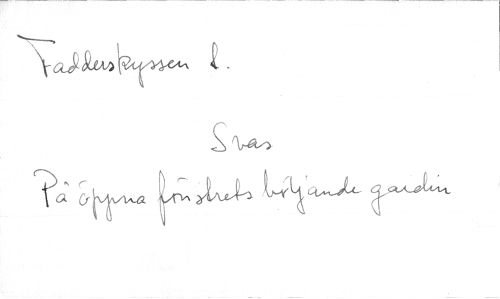 Fadderskyssen l.
Svas
På öppna fönstrets böljande gardin